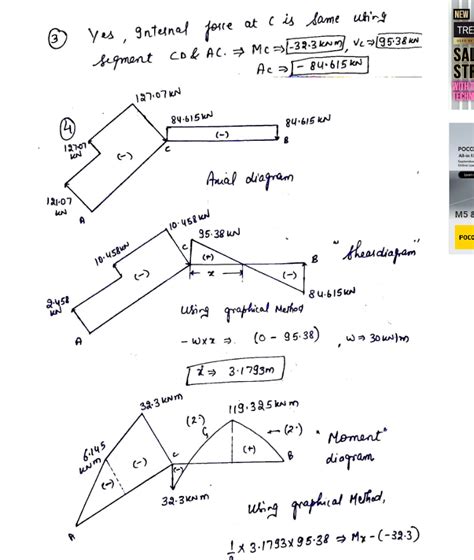 ③ Yes, Internal force at C is same using
segment CD & AC. ⇒ Mc ⇒ -32.3 kNm, Vc ⇒ 95.38 kN
Ac ⇒ - 84.615 kN
④
127.07 kN
84.615 kN
84.615 kN
(-)
127.07
kN
C
B
(-)
121.07
kN
A
Axial diagram
10.458 kN
95.38 kN
10.458 kN
(+)
B
"Shear diagram"
(-)
C
x
(-)
2.458
kN
84.615 kN
A
Using graphical Method
-w×x ⇒ (0 - 95.38), w ⇒ 30 kN/m
x ⇒ 3.1793m
32.3 kNm
119.325 kNm
(2°)
(2°)
6.145
kNm
"Moment"
diagram
(-)
(-)
C
(-)
(+)
B
32.3 kNm
A
Using graphical Method,
1/2 × 3.1793 × 95.38 ⇒ Mx - (-32.3)
NEW
TRE
SAL
STR
WITH
TECHN
POCC
All-in
M5 &
POCC